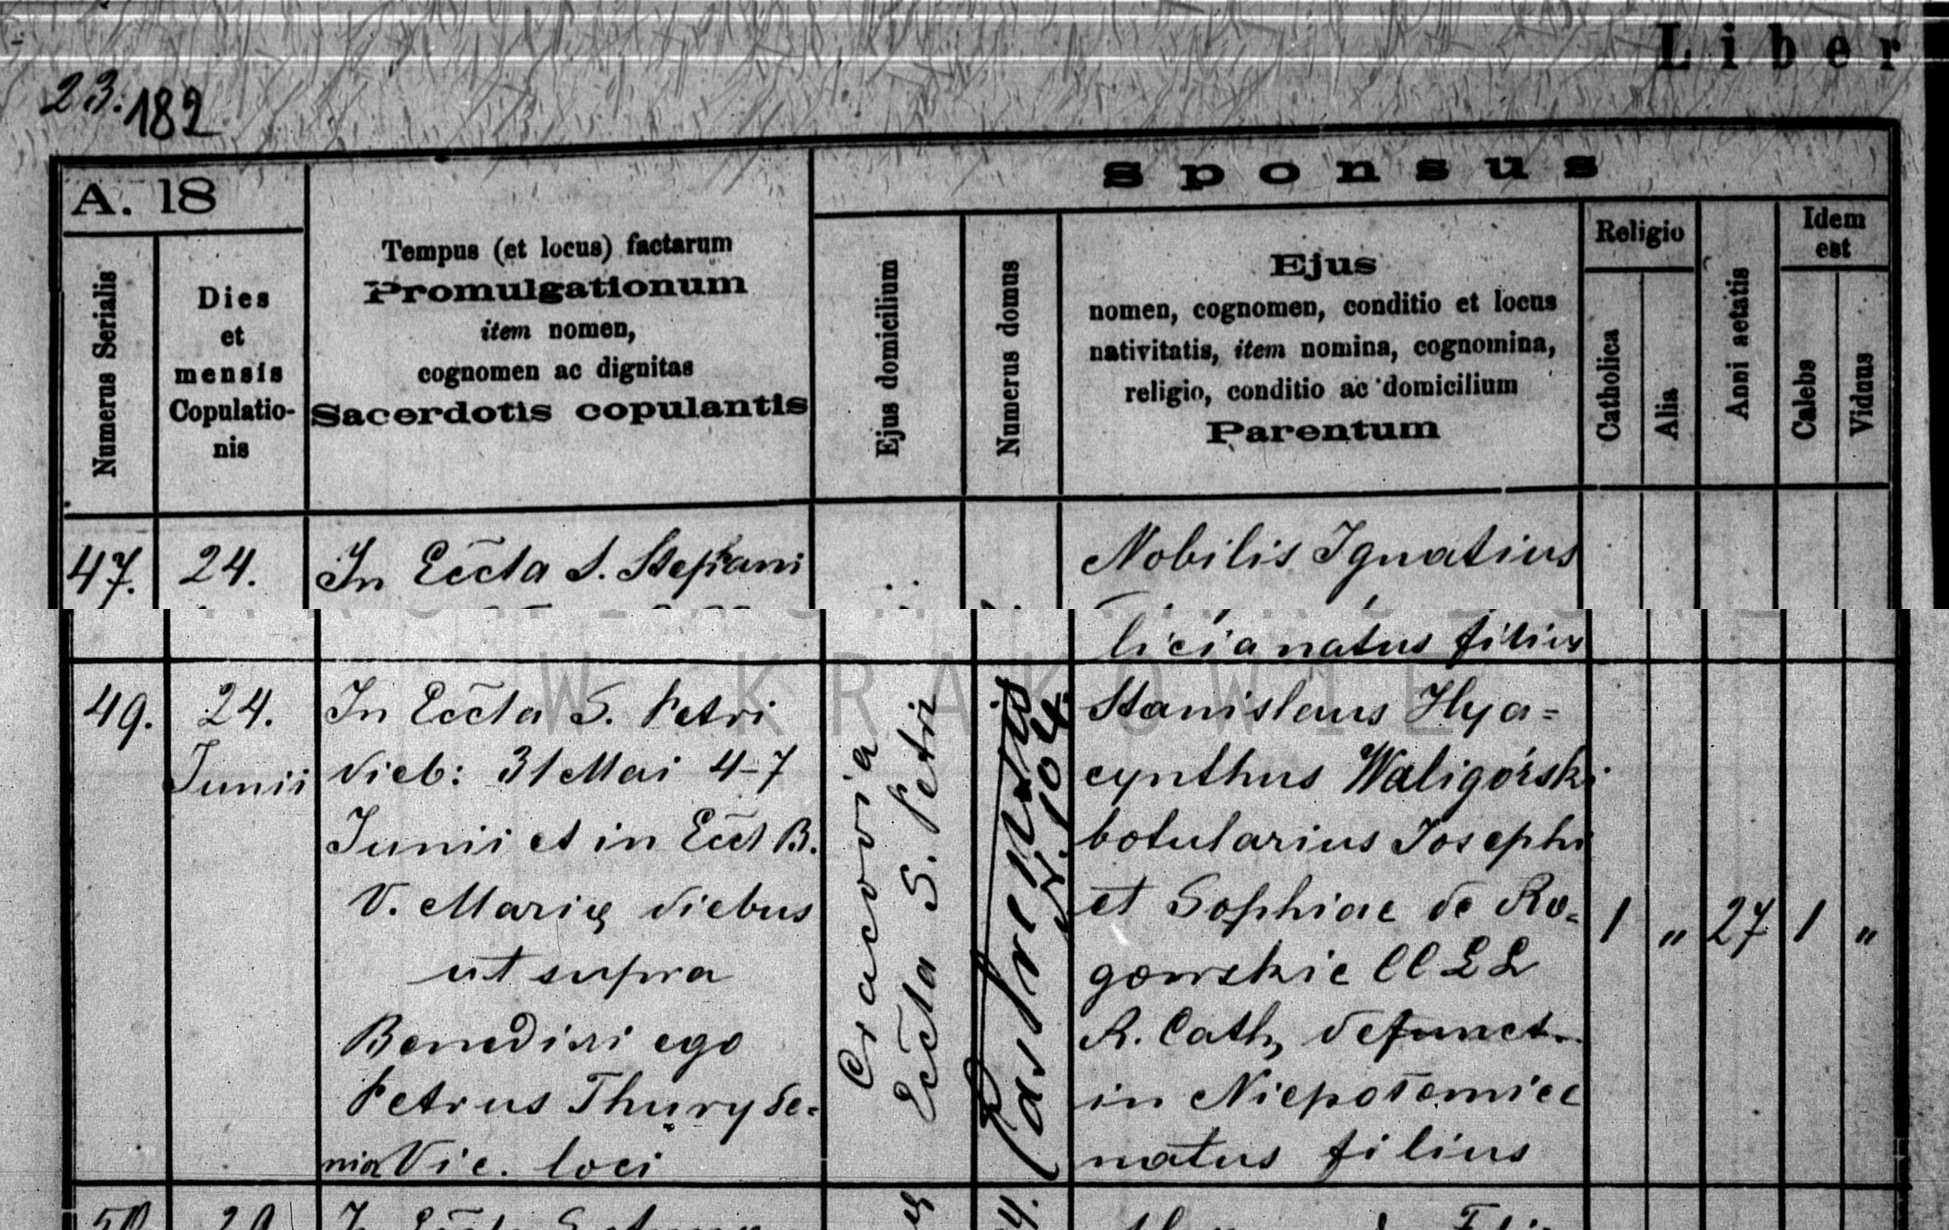 Liber
23. 182
Sponsus
A. 18
Numerus Serialis
Dies
et
mensis
Copulatio-
nis
Tempus (et locus) factarum
Promulgationum
item nomen,
cognomen ac dignitas
Sacerdotis copulantis
Ejus domicilium
Numerus domus
Ejus
nomen, cognomen, conditio et locus
nativitatis, item nomina, cognomina,
religio, conditio ac domicilium
Parentum
Religio
Catholica
Alia
Anni aetatis
Idem
est
Calebs
Viduus
47.
24.
In Eccta S. Stephani
Nobilis Ignatius
licia natus filius
W KRAKOWIE
49.
24.
Junii
In Eccta S. Petri
dieb: 31 Mai 4-7
Junii et in Eccl B.
V. Marię diebus
ut supra
Benedixi ego
Petrus Thury Se=
nior Vic. loci
Cracovia
Eccta S. Petri
N. 104.
Stanislaus Hya=
cynthus Waligórski
botularius Josephi
et Sophiae de Ro=
gowskie CC LL
R. Cath, defunct.
in Niepołomice
natus filius
1
"
27
1
"
50.